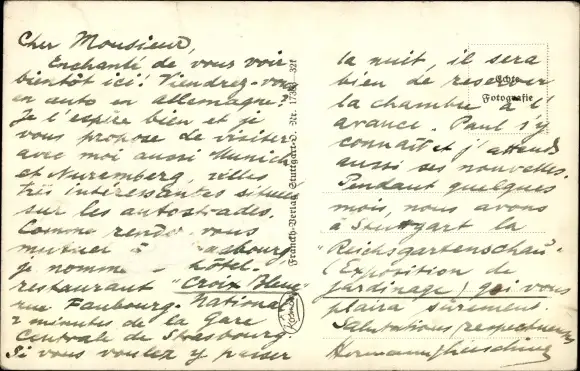 Cher Monsieur,
Enchanté de vous voir
bientôt ici! Viendrez-vous
en auto en Allemagne?
Je l'espère bien et je
vous propose de visiter
avec moi aussi Munich
et Nuremberg, villes
très intéressantes situées
sur les autostrades.
Comme rendez-vous
à
je nomme hôtel-
restaurant "Croix Bleue"
rue Faubourg-National
2 minutes de la Gare
Centrale de Strasbourg.
Si vous voulez y passer
Franckh-Verlag Stuttgart-O. Nr.
Kosmos
la nuit, il sera
bien de reserver
la chambre à l'
avance. Paul s'y
connaît et j'attends
aussi ses nouvelles.
Pendant quelques
mois, nous avons
à Stuttgart la
"Reichsgartenschau"
(Exposition de
jardinage) qui vous
plaira sûrement.
Salutations respectueuses
Hermann
Echte
Fotografie